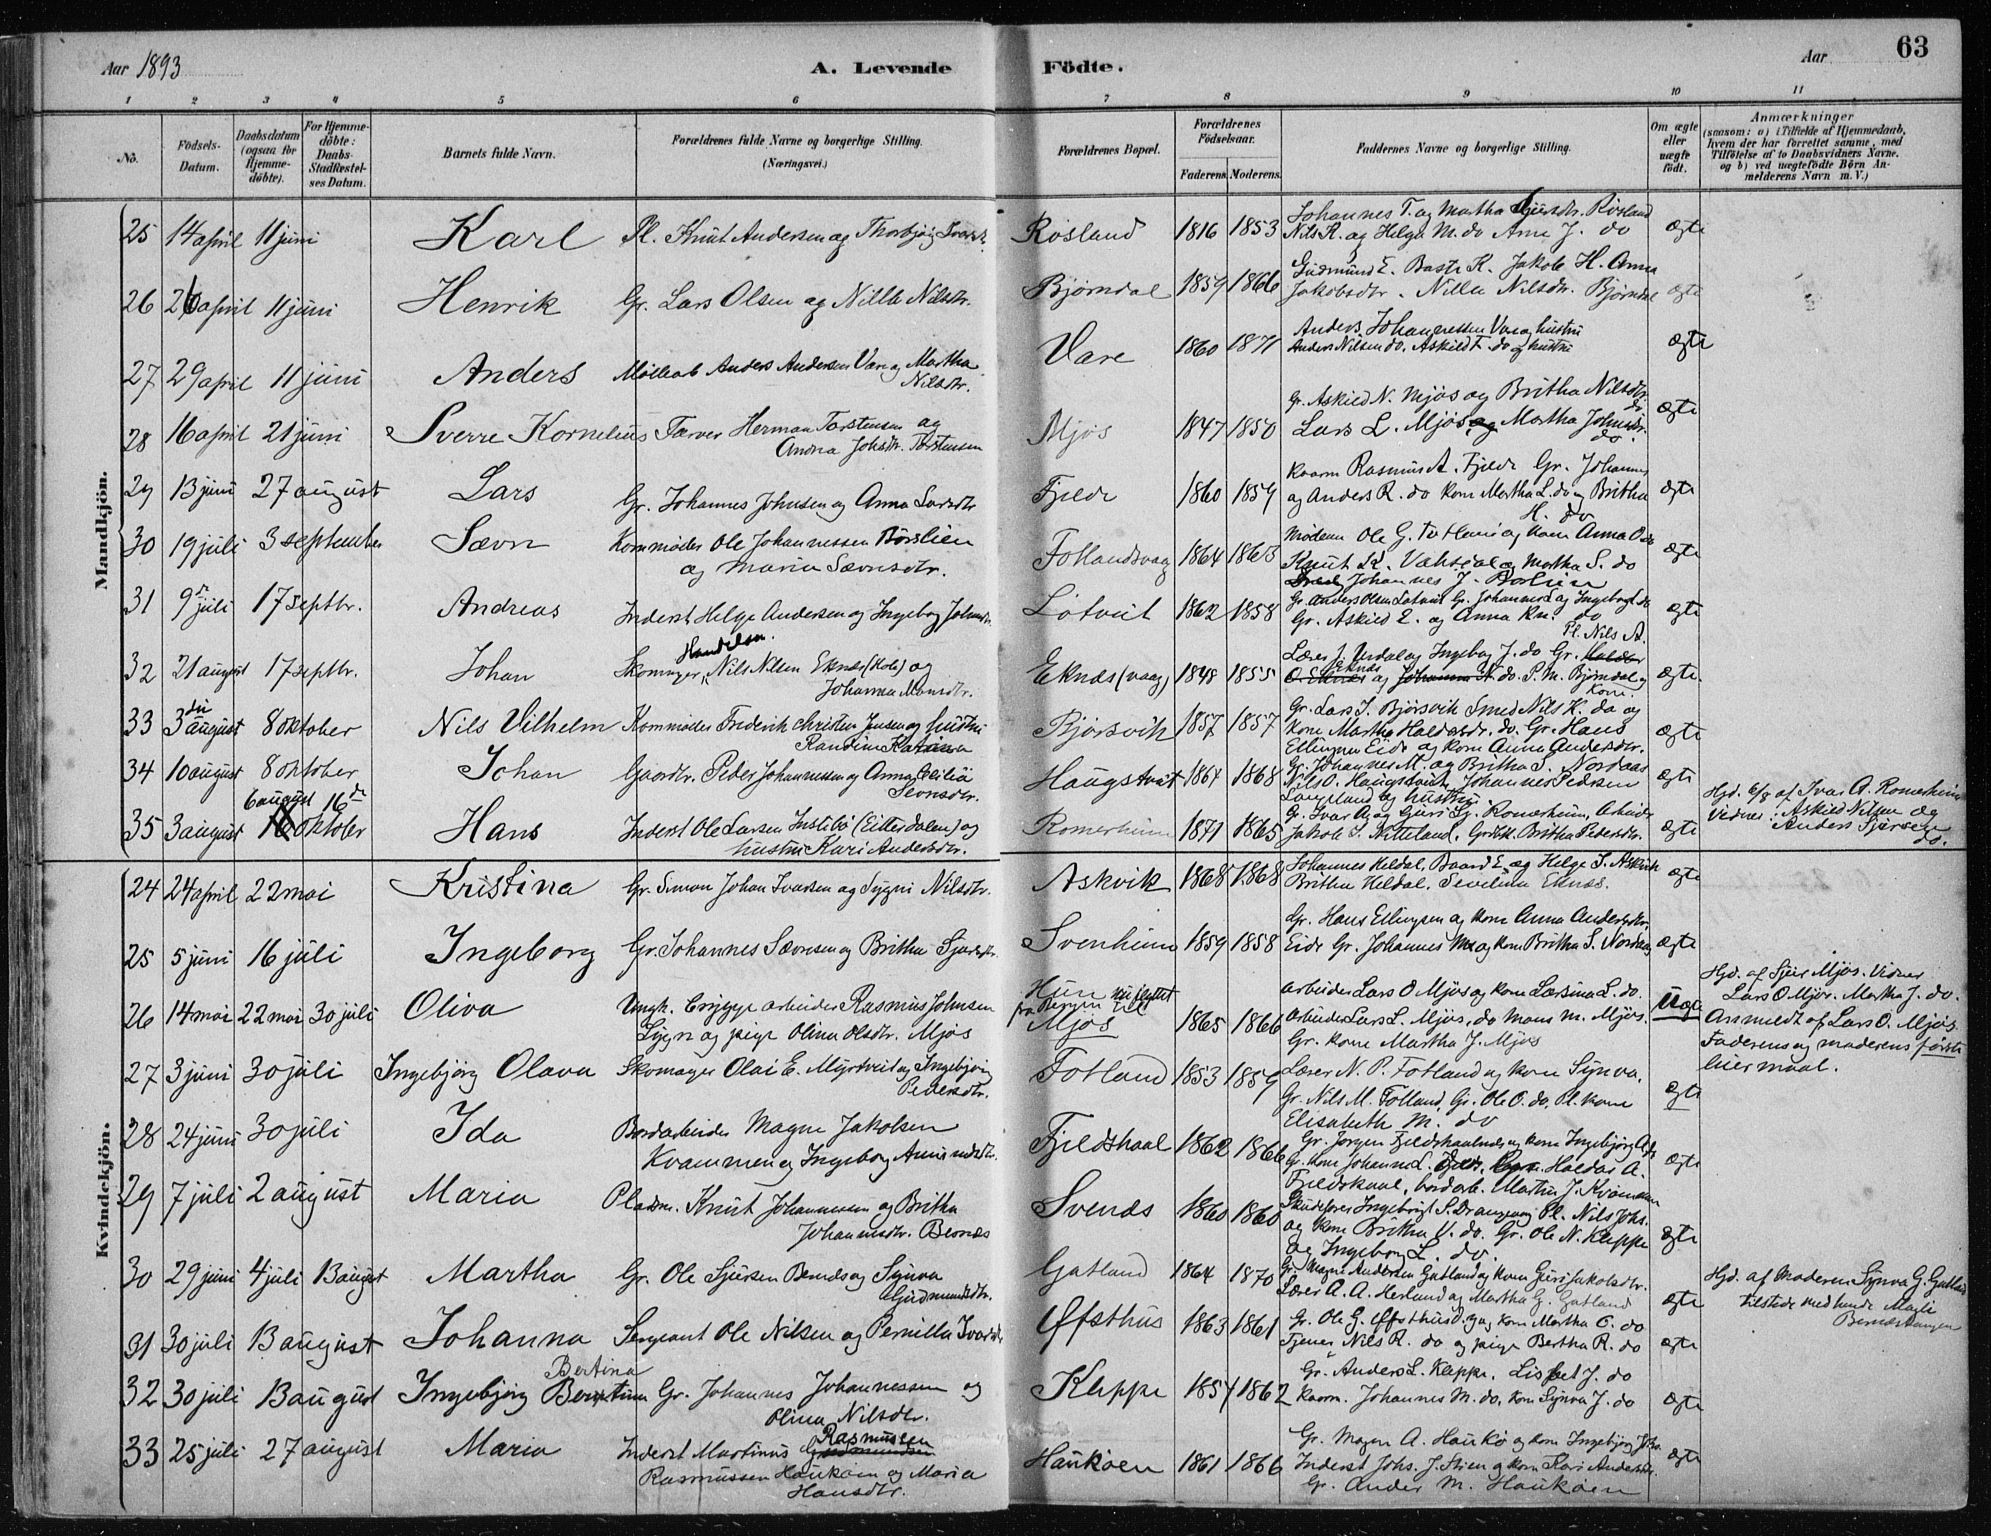 Aar 1893
A. Levende Födte.
Aar
63
1 2 3 4 5 6 7 8 9 10 11
No.
Födsels-Datum.
Daabsdatum (ogsaa for Hjemme-döbte).
For Hjemme-döbte: Daabs-Stadfæstel-ses Datum.
Barnets fulde Navn.
Forældrenes fulde Navne og borgerlige Stilling.
(Næringsvei.)
Forældrenes Bopæl.
Forældrenes Födselsaar.
Faderens. Moderens.
Faddernes Navne og borgerlige Stilling.
Om ægte eller uægte födt.
Anmærkninger
(saasom: a) i Tilfælde af Hjemmedaab,
hvem der har forrettet samme, med
Tilföielse af to Daabsvidners Navne,
og b) ved uægtefödte Börn An-
melderens Navn m. V.)
Mandkjön.
25 14 april 11 juni Karl Pl. Knut Andersen og Thorbjørg Røsland 1816 1853 Johannes T. og Martha Røsland
Nils R. og Helga M. do Arne J. do ægte
26 26 april 11 juni Henrik Gr. Lars Olsen og Nilla Nilsdtr. Bjørndal 1859 1866 Gudmund E. Jakob H. Anna
Jakobsdtr. Nilla Nilsdtr. Bjørndal ægte
27 29 april 11 juni Anders Anders Andersen Vare og Martha
Nilsdtr. Vare 1860 1871 Anders Johannessen Vare og hustru
Anders Nilsen do. Askild T. do og hustru ægte
28 16 april 21 juni Sverre Kornelius Farver Herman Torstensen og
Andrea Johsdtr. Torstensen Mjøs 1847 1850 Gr. Askild N. Mjøs og Britha Nilsdtr. do
Lars L. Mjøs og Martha Johnsdtr. do. ægte
29 13 juni 27 august Lars Gr. Johannes Johnsen og Anna Larsdtr Fjelde 1860 1859 Rasmus A. Fjelde Gr. Johannes
og Anders R. do kone Martha L. do og Britha
H. do ægte
30 19 juli 3 september Sævn Kommøder Ole Johannessen Børslien
og Maria Sævnsdtr. Fotlandsvaag 1864 1863 Ole G. og kone Anna O. do
Knut K. og Martha S. do
Johannes J. Børslien ægte
31 9de juli 17 septbr. Andreas Inderst Helge Andersen og Ingeborg Johnsdtr. Løtveit 1862 1858 Gr. Anders Olsen Løtveit Gr. Johannes L og Ingeborg do
Gr. Askild E. og Anna Kn. do ægte
32 21 august 17 septbr. Johan Skomager, Handelsm. Nils Nilsen Eknæs (Hole) og
Johanna Monsdtr. Eknæs (vaag) 1848 1855 Pl. Nils A.
Lærer J. Urdal og Ingeborg J. do Gr.
Eknæs og do. P. M. Bjørndal og
kone. ægte.
33 3die august 8 oktober Nils Vilhelm Kommøder Fredrik Christen Jensen og hustru
Randine Katrina Bjørsvik 1857 1857 Gr. Lars I. Bjørsvik Smed Nils K. do og
kone Martha Haldorsdr. do. Gr. Hans
Ellingsen Eide og kone Anna Andersdtr. ægte
34 10 august 8 oktober Johan Gaardbr. Peder Johannessen og Anna Cecilia
Sevnsdtr. Haugstvedt 1867 1868 Gr. Johannes M. og Britha S. Nordaas
Nils O. Haugstvedt, Johannes Pedersen
Langeland og hustru ægte
35 3 august 6 august 16de oktober Hans Inderst Ole Larsen Institbø (Eitterdalen) og
hustru Kari Andersdtr. Romerheim 1871 1865 Gr. Ivar A og Guri Romerheim, Arbeider
Jakob S. Nitteland, Britha Pedersdtr. ægte Hjd. 6/8 af Ivar A. Romerheim
Vidner: Askild Nilsen og
Anders Sjursen
do.
Kvindekjön.
24 24 april 22 mai Kristina Gr. Simon Johan Ivarsen og Sygni Nilsdtr. Askvik 1868 1868 Johannes Heldal, Baard E. og Helge S. Askvik
Britha Heldal, Sevilina Eknæs. ægte
25 5 juni 16 juli Ingeborg Gr. Johannes Sævnsen og Britha Sjursdtr Svenheim 1859 1858 Gr. Hans Ellingsen og kone Anna Andersdtr.
Eide Gr. Johannes M. og kone Britha S. Nordaas ægte
26 14 mai 22 mai 30 juli Oliva Ungk. Brygge arbeider Rasmus Johnsen
og pige Olina Olsdtr. Mjøs Hun nu flyttet
fra Bergen til
Mjøs 1865 1866 Arbeider Lars O Mjøs og kone Larsina L. do.
Arbeider Lars L. Mjøs, do Mons M. Mjøs.
Gr. kone Martha J. Mjøs Uægte Hjd. af Sjur Mjøs. Vidner
Lars O Mjøs. Martha J. do.
Anmeldt af Lars O. Mjøs
Faderens og moderens første
leiermaal.
27 3 juni 30 juli Ingebjørg Olava Skomager Olai E. Myrtveit og Ingebjørg
Pedersdtr. Fotland 1853 1859 Lærer N. P. Fotland og kone Synva.
Gr. Nils M. Fotland, Gr. Ole O. do, Pl. kone
Elisabeth M. do ægte
28 24 juni 30 juli Ida Bordarbeider Magne Jakobsen
Kvammen og Ingeborg Amundsdtr. Fjeldskaal 1862 1866 Gr. Jørgen Fjeldskaalnes og kone Ingebjørg A. do
Gr. kone Johanne L. Haldor A.
Fjeldskaal, bordarb. Martin J. Kvammen ægte
29 7 juli 2 august Maria Pladsm. Knut Johannessen og Britha
Johannesdtr. Bernæs Svenæs 1860 1860 Skudefører Ingebrigt S. Drangevaag Pl. Nils Johs.
og kone Britha U. do. Gr. Ole N. Kleppe
og Ingeborg L. do. ægte
30 29 juni 4 juli 13 august Martha Gr. Ole Sjursen Bernæs og Synva
Gudmundsdtr. Gatland 1864 1870 Gr. Magne Andersen Gatland og kone Guri Jakobsdtr.
Lærer A. A. Herland og Martha G. Gatland ægte Hjd. af Moderen Synva G. Gatland
tilstede med hende Magli
Bernæstangen
31 30 juli 13 august Johanna Sergeant Ole Nilsen og Pernilla Ivarsdtr Øfsthus 1863 1861 Gr. Ole G. Øfsthus og kone Martha O. do
Tjener Nils R. do og pige Bertha R. do ægte
32 30 juli 13 august Ingebjørg Bertina Gr. Johannes Johannessen og
Olina Nilsdtr. Kleppe 1857 1862 Gr. Anders L. Kleppe. Lisbet J. do
Johannes M. do, kone Synva J. do ægte
33 25 juli 27 august Maria Inderst Martinus Rasmussen
Rasmussen Haukøen og Maria
Hansdtr. Haukøen 1861 1866 Gr. Magne A. Haukø og kone Ingebjørg
Inderst Johs. J. Stien og kone Kari Andersdtr.
Gr. Anders M. Haukøen ægte